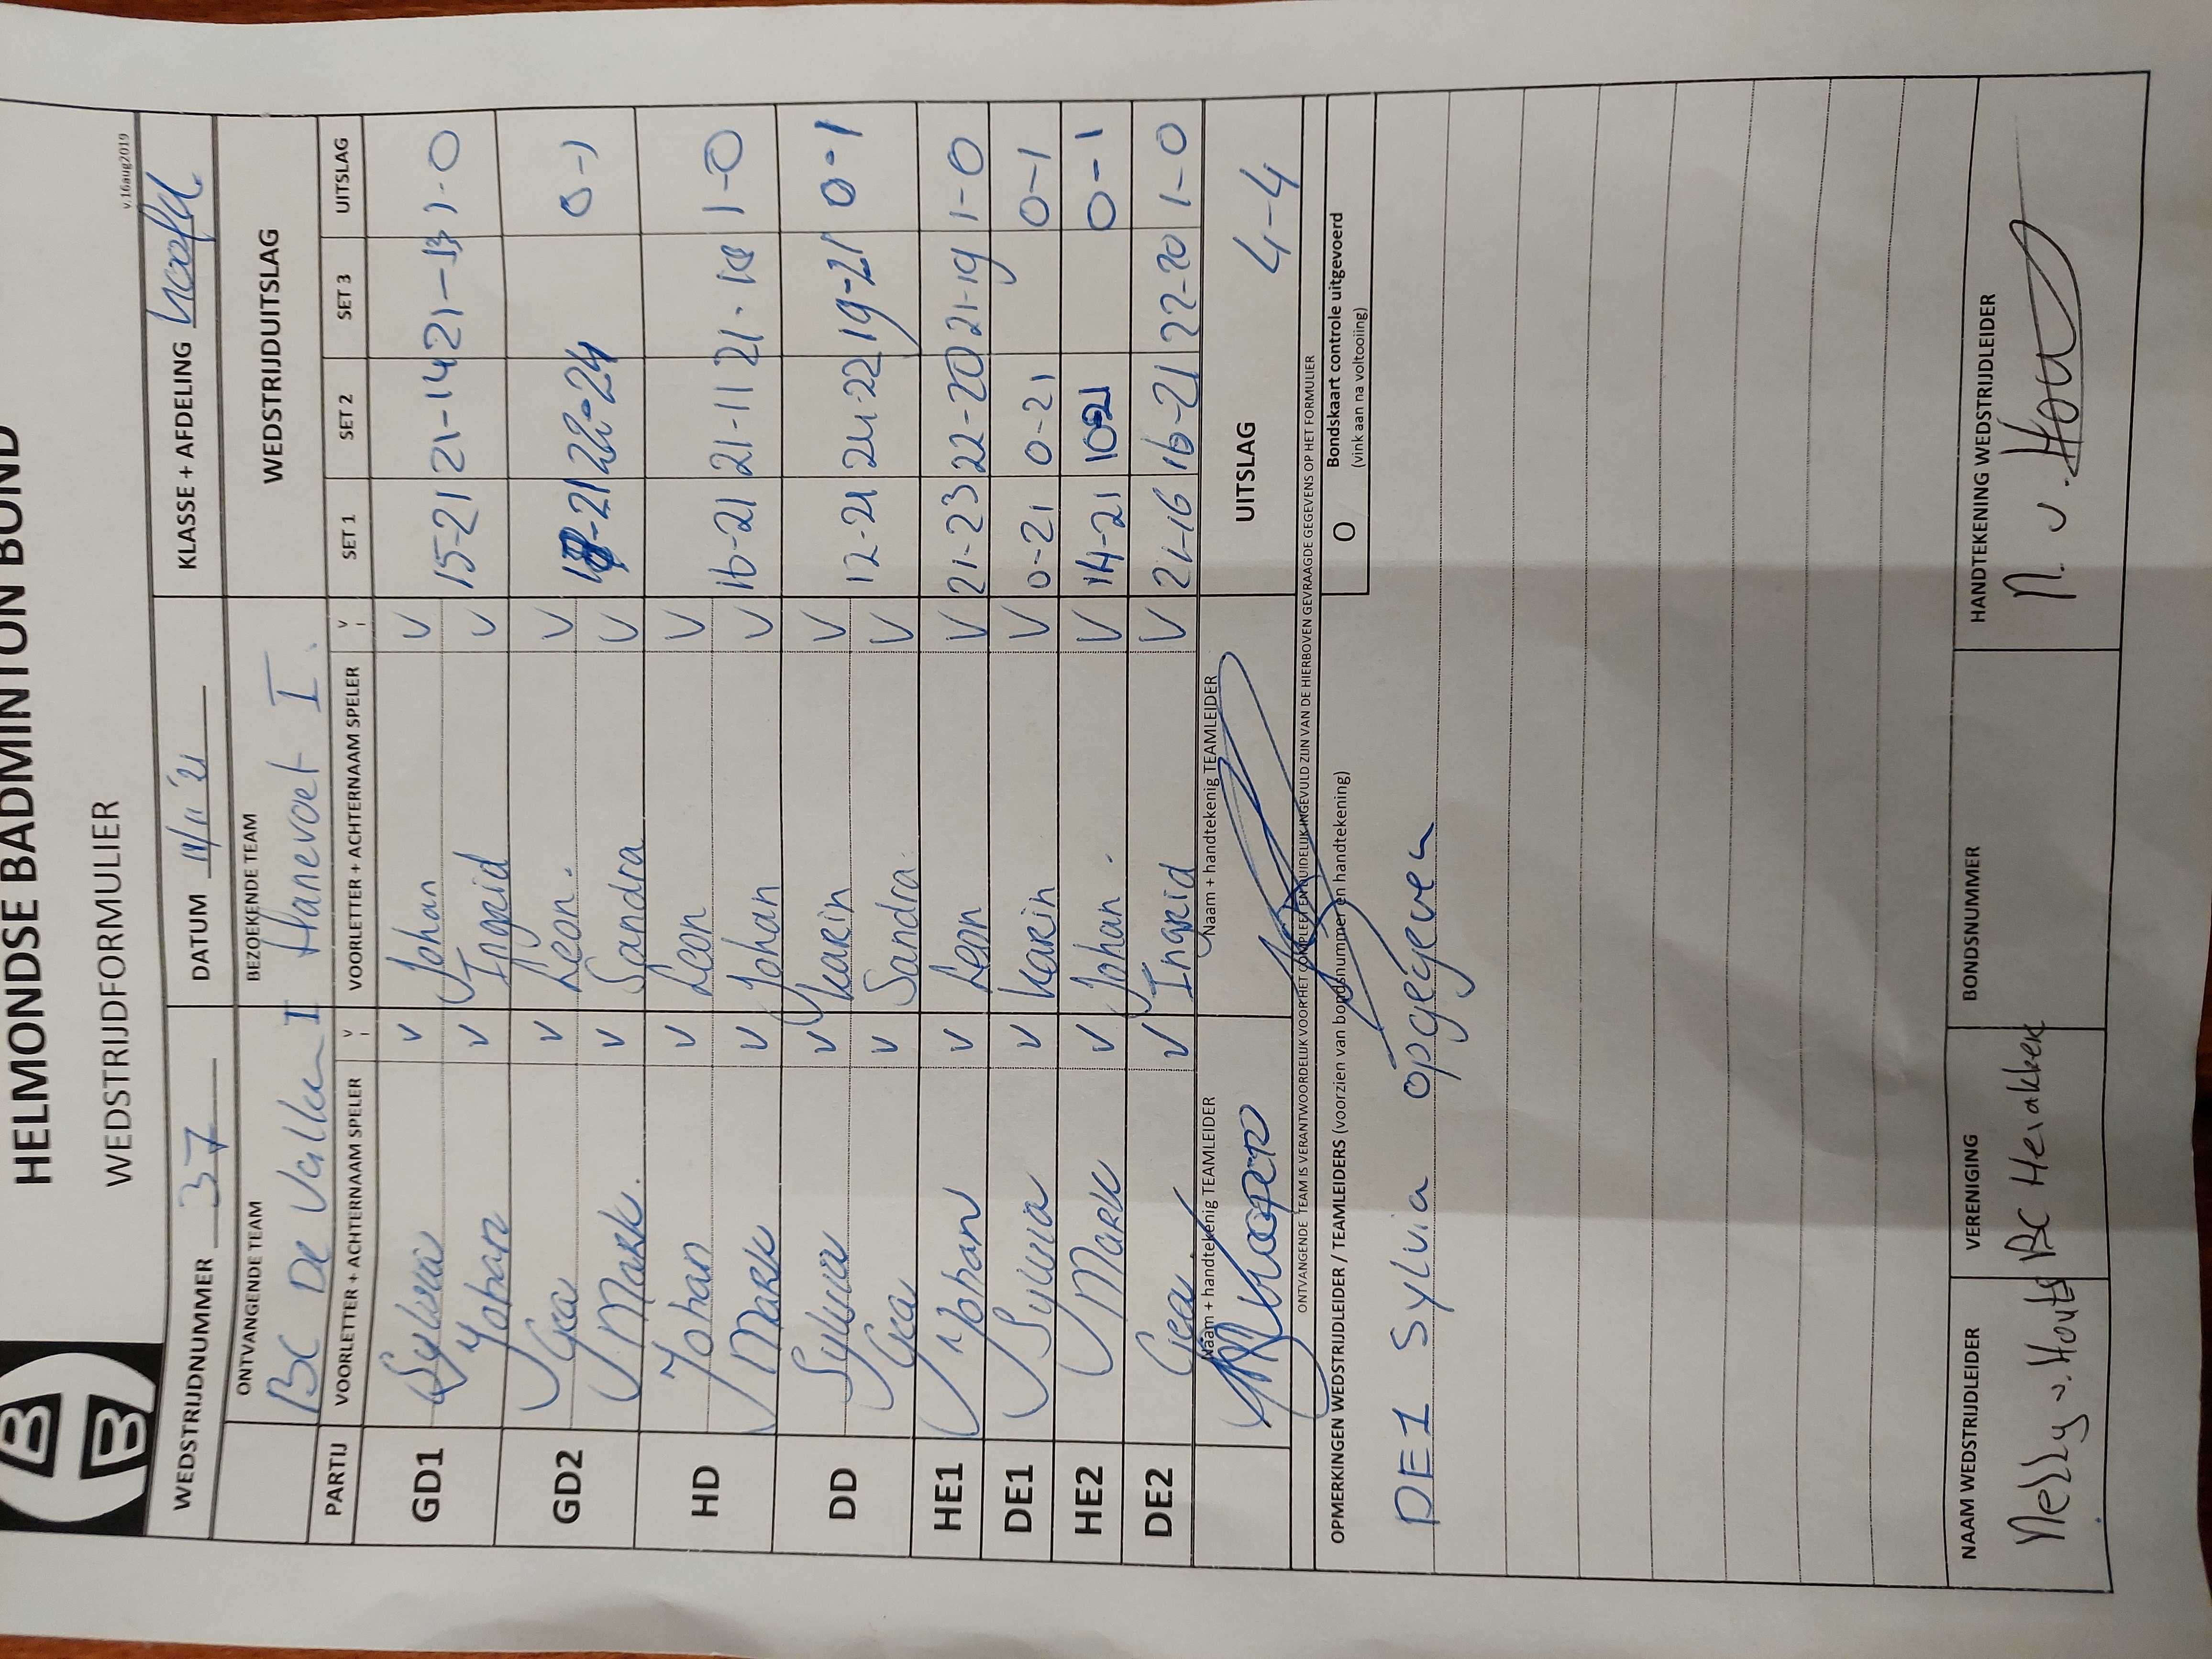 HELMONDSE BADMINTON BOND
WEDSTRIJDFORMULIER
v.16aug2019
WEDSTRIJDNUMMER 37 DATUM 11/11 '21 KLASSE + AFDELING hoofd
ONTVANGENDE TEAM BEZOEKENDE TEAM WEDSTRIJDUITSLAG
BC De Valken I Hanevoet I
PARTIJ VOORLETTER + ACHTERNAAM SPELER V VOORLETTER + ACHTERNAAM SPELER V SET 1 SET 2 SET 3 UITSLAG
GD1 Sylvia V Johan V 15-21 21-14 21-13 1-0
Johan V Ingrid V
GD2 Gea V Leon. V -21 22-24 0-1
Mark. V Sandra V
HD Johan V Leon V 16-21 21-11 21-18 1-0
Mark V Johan V
DD Sylvia V Karin V 12-21 24-22 19-21 0-1
Gea V Sandra V
HE1 Johan V Leon V 21-23 22-20 21-19 1-0
DE1 Sylvia V Karin V 0-21 0-21 0-1
HE2 Mark V Johan. V 14-21 10-21 0-1
DE2 Gea V Ingrid V 21-16 16-21 22-20 1-0
Naam + handtekenig TEAMLEIDER Naam + handtekenig TEAMLEIDER UITSLAG 4-4
ONTVANGENDE TEAM IS VERANTWOORDELIJK VOOR HET COMPLEET EN DUIDELIJK INGEVULD ZIJN VAN DE HIERBOVEN GEVRAAGDE GEGEVENS OP HET FORMULIER
OPMERKINGEN WEDSTRIJDLEIDER / TEAMLEIDERS (voorzien van bondsnummer en handtekening) O Bondskaart controle uitgevoerd
(vink aan na voltooiing)
DE1 Sylvia opgegeven
NAAM WEDSTRIJDLEIDER VERENIGING BONDSNUMMER HANDTEKENING WEDSTRIJDLEIDER
Nelly v. Houts BC Herakken N. v. Hou